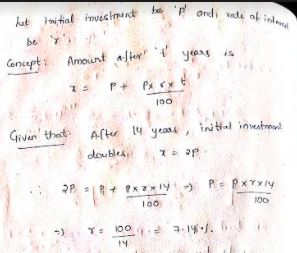 Let initial investment be 'p' and rate of interest
be 'r'.
Concept: Amount after 't' years is
x = P + P x r x t / 100
Given that After 14 years, initial investment
doubles. x = 2P.
∴ 2P = P + P x r x 14 / 100 => P = P x r x 14 / 100
=> r = 100 / 14 = 7.14 %.